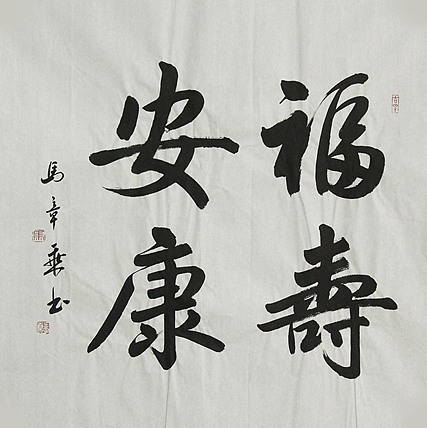 福壽
安康
馬章乘书